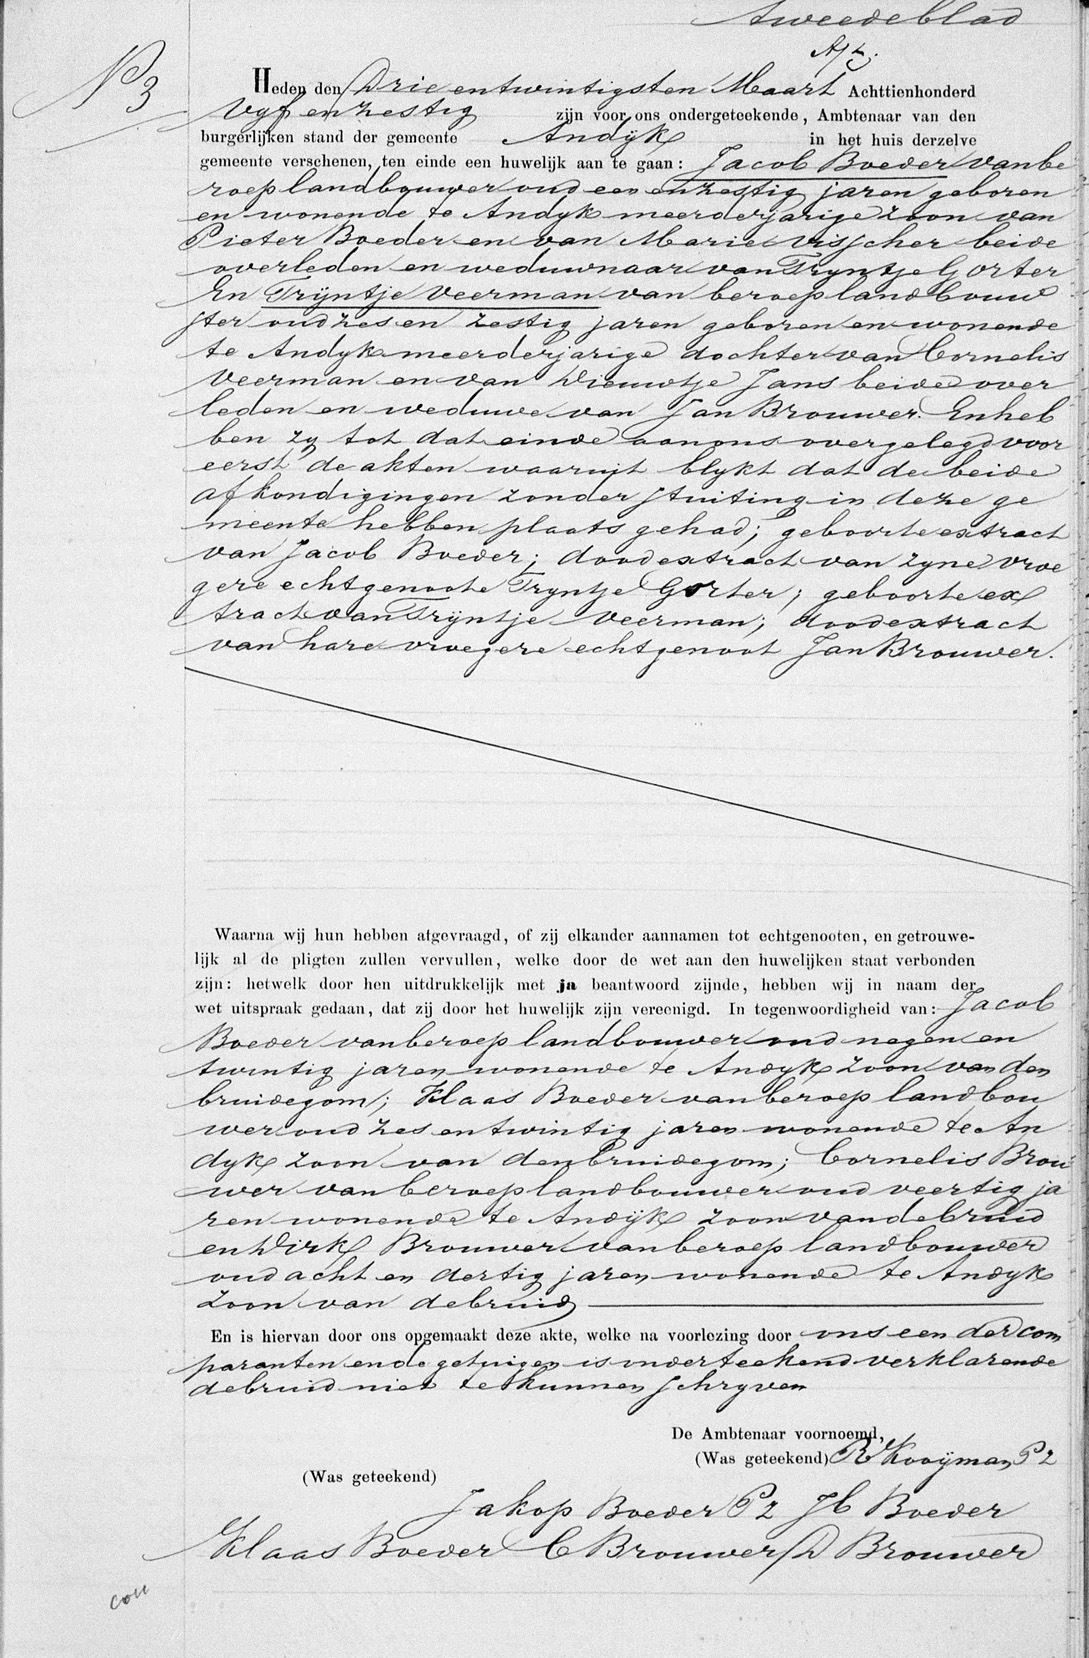 Tweedeblad
N 3
Heden den Drie entwintigsten Maart Achttienhonderd
Vyf en zestig zijn voor ons ondergeteekende, Ambtenaar van den
burgerlijken stand der gemeente Andÿk in het huis derzelve
gemeente verschenen, ten einde een huwelijk aan te gaan: Jacob Boeder van be
roep landbouwer oud een en zestig jaren geboren
en wonende te Andyk meerderjarige zoon van
Pieter Boeder en van Marie Visscher beide
overleden en weduwnaar van Tryntje Gorter
En Trÿntje Veerman van beroep landbouw
ster oud zes en zestig jaren geboren en wonende
te Andyk meerderjarige dochter van Cornelis
Veerman en van Dieuwtje Jans beide over
leden en weduwe van Jan Brouwer. En heb
ben zy tot dat einde aan ons overgelegd voor
eerst de akten waaruit blykt dat de beide
afkondigingen zonder stuiting in deze ge
meente hebben plaats gehad; geboorte extract
van Jacob Boeder; doodextract van zyne vroe
gere echtgenoote Tryntje Gorter; geboorte ex
tract van Trÿntje Veerman; doodextract
van hare vroegere echtgenoot Jan Brouwer.
Waarna wij hun hebben afgevraagd, of zij elkander aannamen tot echtgenooten, en getrouwe-
lijk al de pligten zullen vervullen, welke door de wet aan den huwelijken staat verbonden
zijn: hetwelk door hen uitdrukkelijk met ja beantwoord zijnde, hebben wij in naam der
wet uitspraak gedaan, dat zij door het huwelijk zijn vereenigd. In tegenwoordigheid van: Jacob
Boeder van beroep landbouwer oud negen en
twintig jaren wonende te Andyk zoon van den
bruidegom; Klaas Boeder van beroep landbou
wer oud zes en twintig jaren wonende te An
dyk zoon van den bruidegom; Cornelis Brou
wer van beroep landbouwer oud veertig ja
ren wonende te Andÿk zoon van de bruid
en Dirk Brouwer van beroep landbouwer
oud acht en dertig jaren wonende te Andyk
zoon van de bruid
En is hiervan door ons opgemaakt deze akte, welke na voorlezing door ons een der com
paranten en de getuigen is onderteekend verklarende
de bruid niet te kunnen schryven
De Ambtenaar voornoemd,
(Was geteekend) R Kooÿman Pz
(Was geteekend)
Jakop Boeder Pz JC Boeder
Klaas Boeder C Brouwer D Brouwer